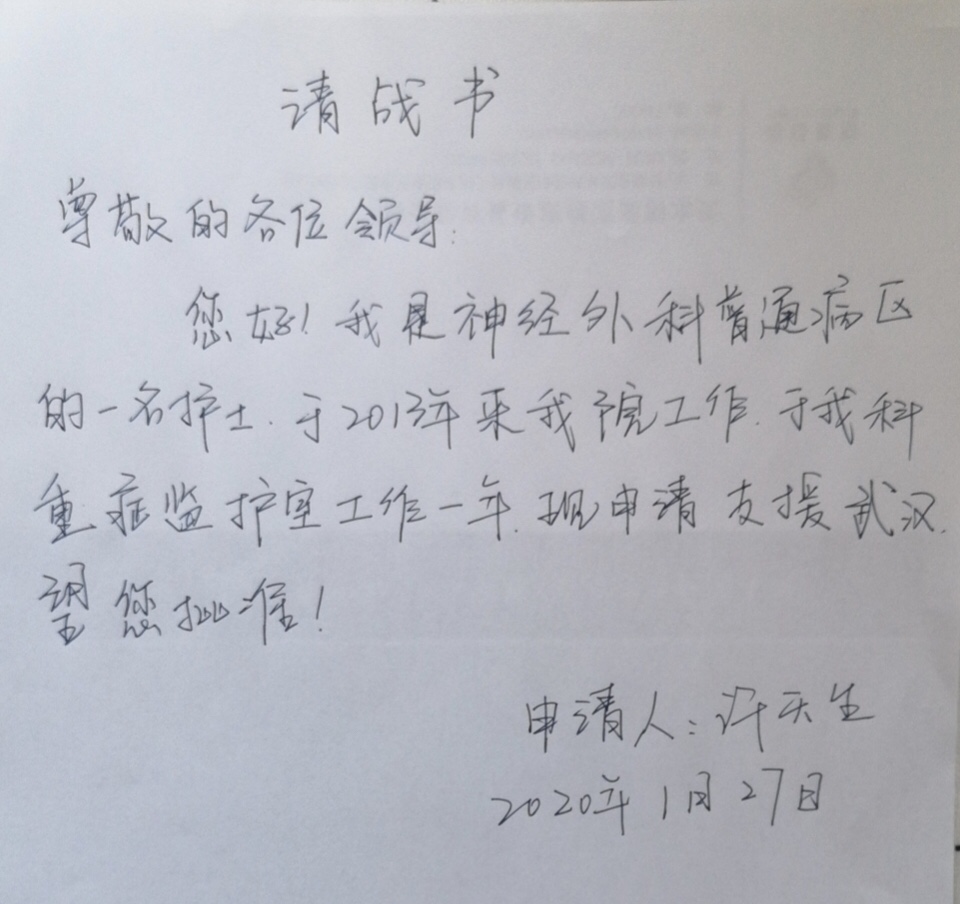 请战书
尊敬的各位领导:
您好!我是神经外科普通病区
的一名护士.于2013年来我院工作.于我科
重症监护室工作一年.现申请支援武汉.
望您批准!
申请人:许天生
2020年1月27日